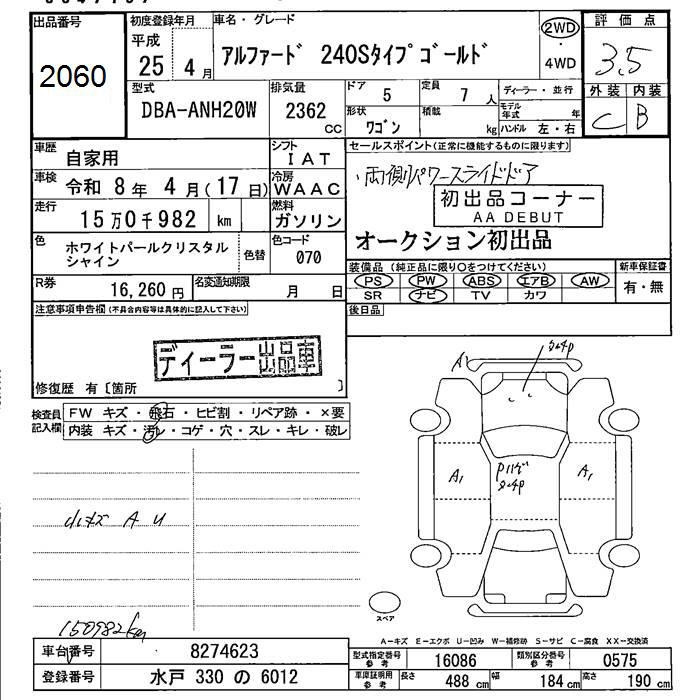 出品番号
2060
初度登録年月
平成
25 4月
車名・グレード
アルファード 240Sタイプゴールド
2WD
・
4WD
評価点
3.5
外装 内装
C B
型式
DBA-ANH20W
排気量
2362
cc
ドア
5
定員
7 人
形状
ワゴン
積載
kg
ディーラー・並行
モデル年式 年
ハンドル 左・右
車歴
自家用
シフト
IAT
車検
令和 8年 4月(17日)
冷房
WAAC
走行
15万0千982 km
燃料
ガソリン
色
ホワイトパールクリスタル
シャイン
色替
色コード
070
R券
16,260円
名変通知期限
月 日
セールスポイント(正常に機能するものに限ります)
・両側パワースライドドア
初出品コーナー
AA DEBUT
オークション初出品
装備品(純正品に限り○をつけてください)
PS PW ABS エアB AW
SR ナビ TV カワ
新車保証書
有・無
後日品
注意事項申告欄(不具合内容等は具体的に記入して下さい)
ディーラー出品車
修復歴 有〔箇所 〕
検査員
記入欄
FW キズ・飛石・ヒビ割・リペア跡・×要
内装 キズ・汚レ・コゲ・穴・スレ・キレ・破レ
小キズ A U
150982km
A
A1
A1
スペア
A-キズ E-エクボ U-凹み W-補修跡 S-サビ C-腐食 XX-交換済
車台番号
8274623
登録番号
水戸 330 の 6012
型式指定番号
参考
16086
類別区分番号
参考
0575
車庫証明用
参考
長さ
488 cm
幅
184 cm
高さ
190 cm